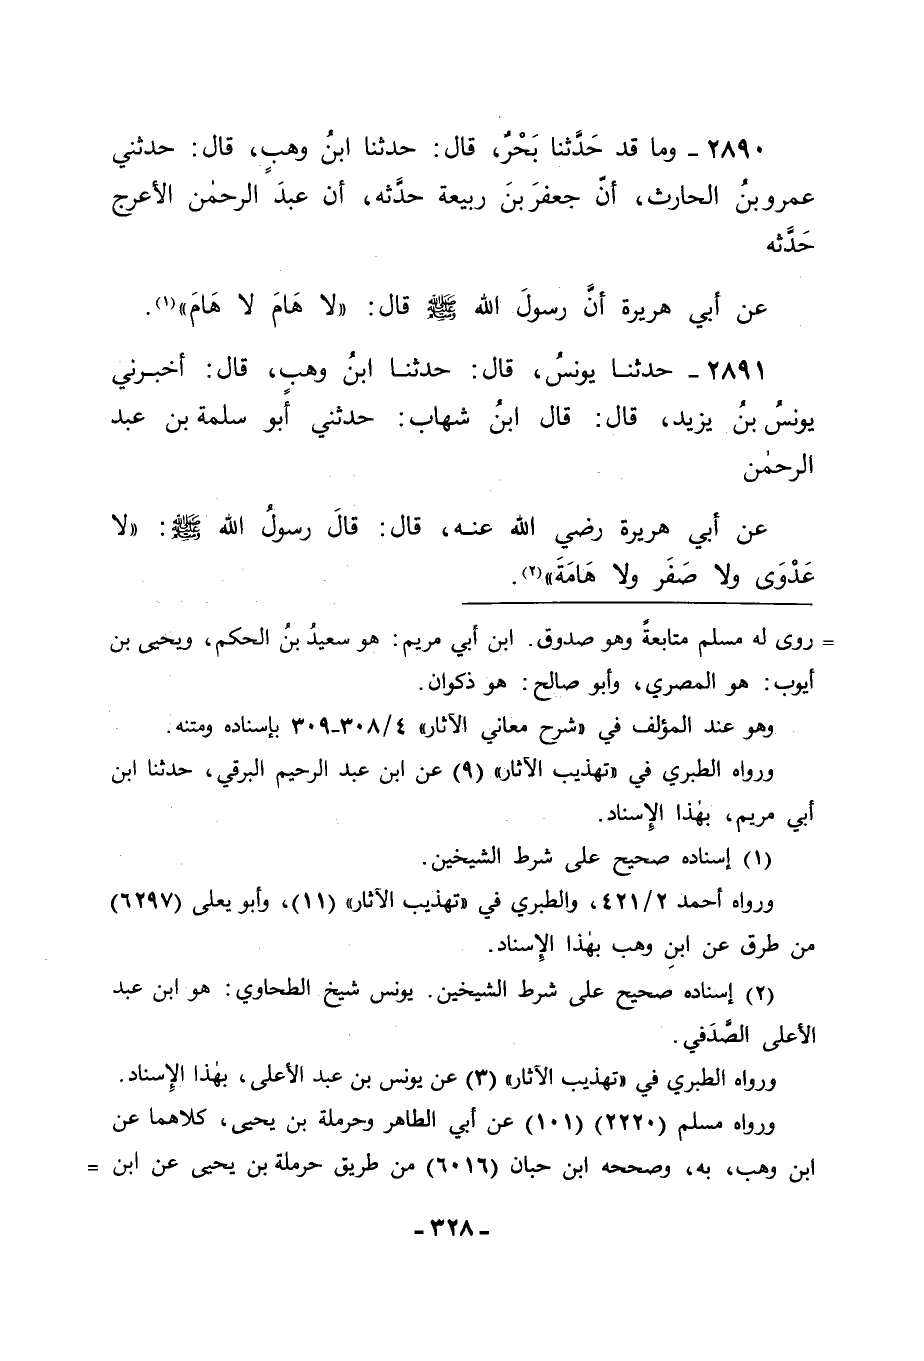 ٢٨٩٠ ـ وما قد حَدَّثنا بَحْرٌ، قال: حدثنا ابنُ وهبٍ، قال: حدثني
عمرو بنُ الحارث، أنّ جعفرَ بنَ ربيعة حدَّثه، أن عبدَ الرحمٰن الأعرج
حَدَّثه
عن أبي هريرة أنَّ رسولَ الله ﷺ قال: «لا هَامَ لا هَامَ»(١).
٢٨٩١ ـ حدثنا يونسُ، قال: حدثنا ابنُ وهبٍ، قال: أخبرني
يونسُ بنُ يزيد، قال: قال ابنُ شهاب: حدثني أبو سلمة بن عبد
الرحمٰن
عن أبي هريرة رضي الله عنه، قال: قالَ رسولُ الله ﷺ: «لا
عَدْوَى ولا صَفَر ولا هَامَةَ»(٢).
= روى له مسلم متابعةً وهو صدوق. ابن أبي مريم: هو سعيدُ بنُ الحكم، ويحيى بن
أيوب: هو المصري، وأبو صالح: هو ذكوان.
وهو عند المؤلف في «شرح معاني الآثار» ٣٠٨/٤ـ٣٠٩ بإسناده ومتنه.
ورواه الطبري في «تهذيب الآثار» (٩) عن ابن عبد الرحيم البرقي، حدثنا ابن
أبي مريم، بهٰذا الإسناد.
(١) إسناده صحيح على شرط الشيخين.
ورواه أحمد ٤٢١/٢، والطبري في «تهذيب الآثار» (١١)، وأبو يعلى (٦٢٩٧)
من طرق عن ابنِ وهب بهٰذا الإسناد.
(٢) إسناده صحيح على شرط الشيخين. يونس شيخ الطحاوي: هو ابن عبد
الأعلى الصَّدَفي.
ورواه الطبري في «تهذيب الآثار» (٣) عن يونس بن عبد الأعلى، بهٰذا الإسناد.
ورواه مسلم (٢٢٢٠) (١٠١) عن أبي الطاهر وحرملة بن يحيى، كلاهما عن
ابن وهب، به، وصححه ابن حبان (٦٠١٦) من طريق حرملة بن يحيى عن ابن =
ـ ٣٢٨ ـ